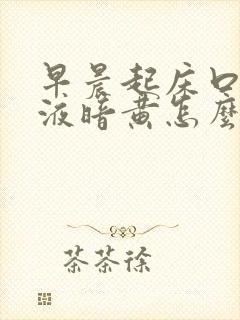 早晨起床口
液暗黄怎麼
茶茶徐